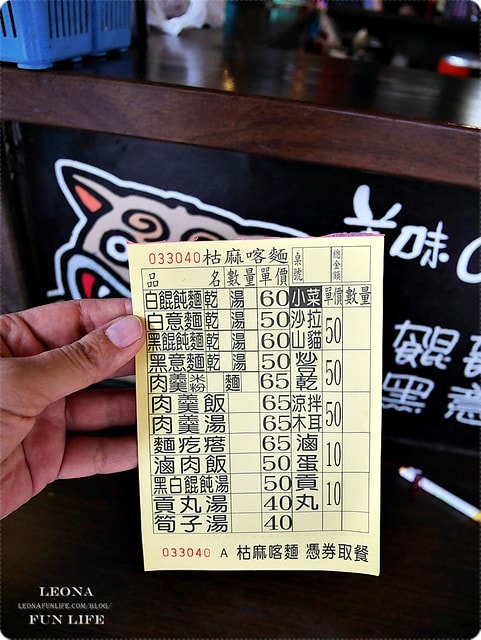 美味
餛
黑
033040 枯麻喀麵 桌號 總金額
品名 數量 單價 小菜 單價 數量
白餛飩麵 乾 湯 60
白意麵 乾 湯 50
黑餛飩麵 乾 湯 60
黑意麵 乾 湯 50
肉羹 粉 麵 65
肉羹飯 65
肉羹湯 65
麵疙瘩 65
滷肉飯 50
黑白餛飩湯 50
貢丸湯 40
筍子湯 40
沙拉山貓 50
豆乾 50
涼拌木耳 50
滷蛋 10
貢丸 10
033040 A 枯麻喀麵 憑券取餐
LEONA
LEONAFUNLIFE.COM/BLOG/
FUN LIFE